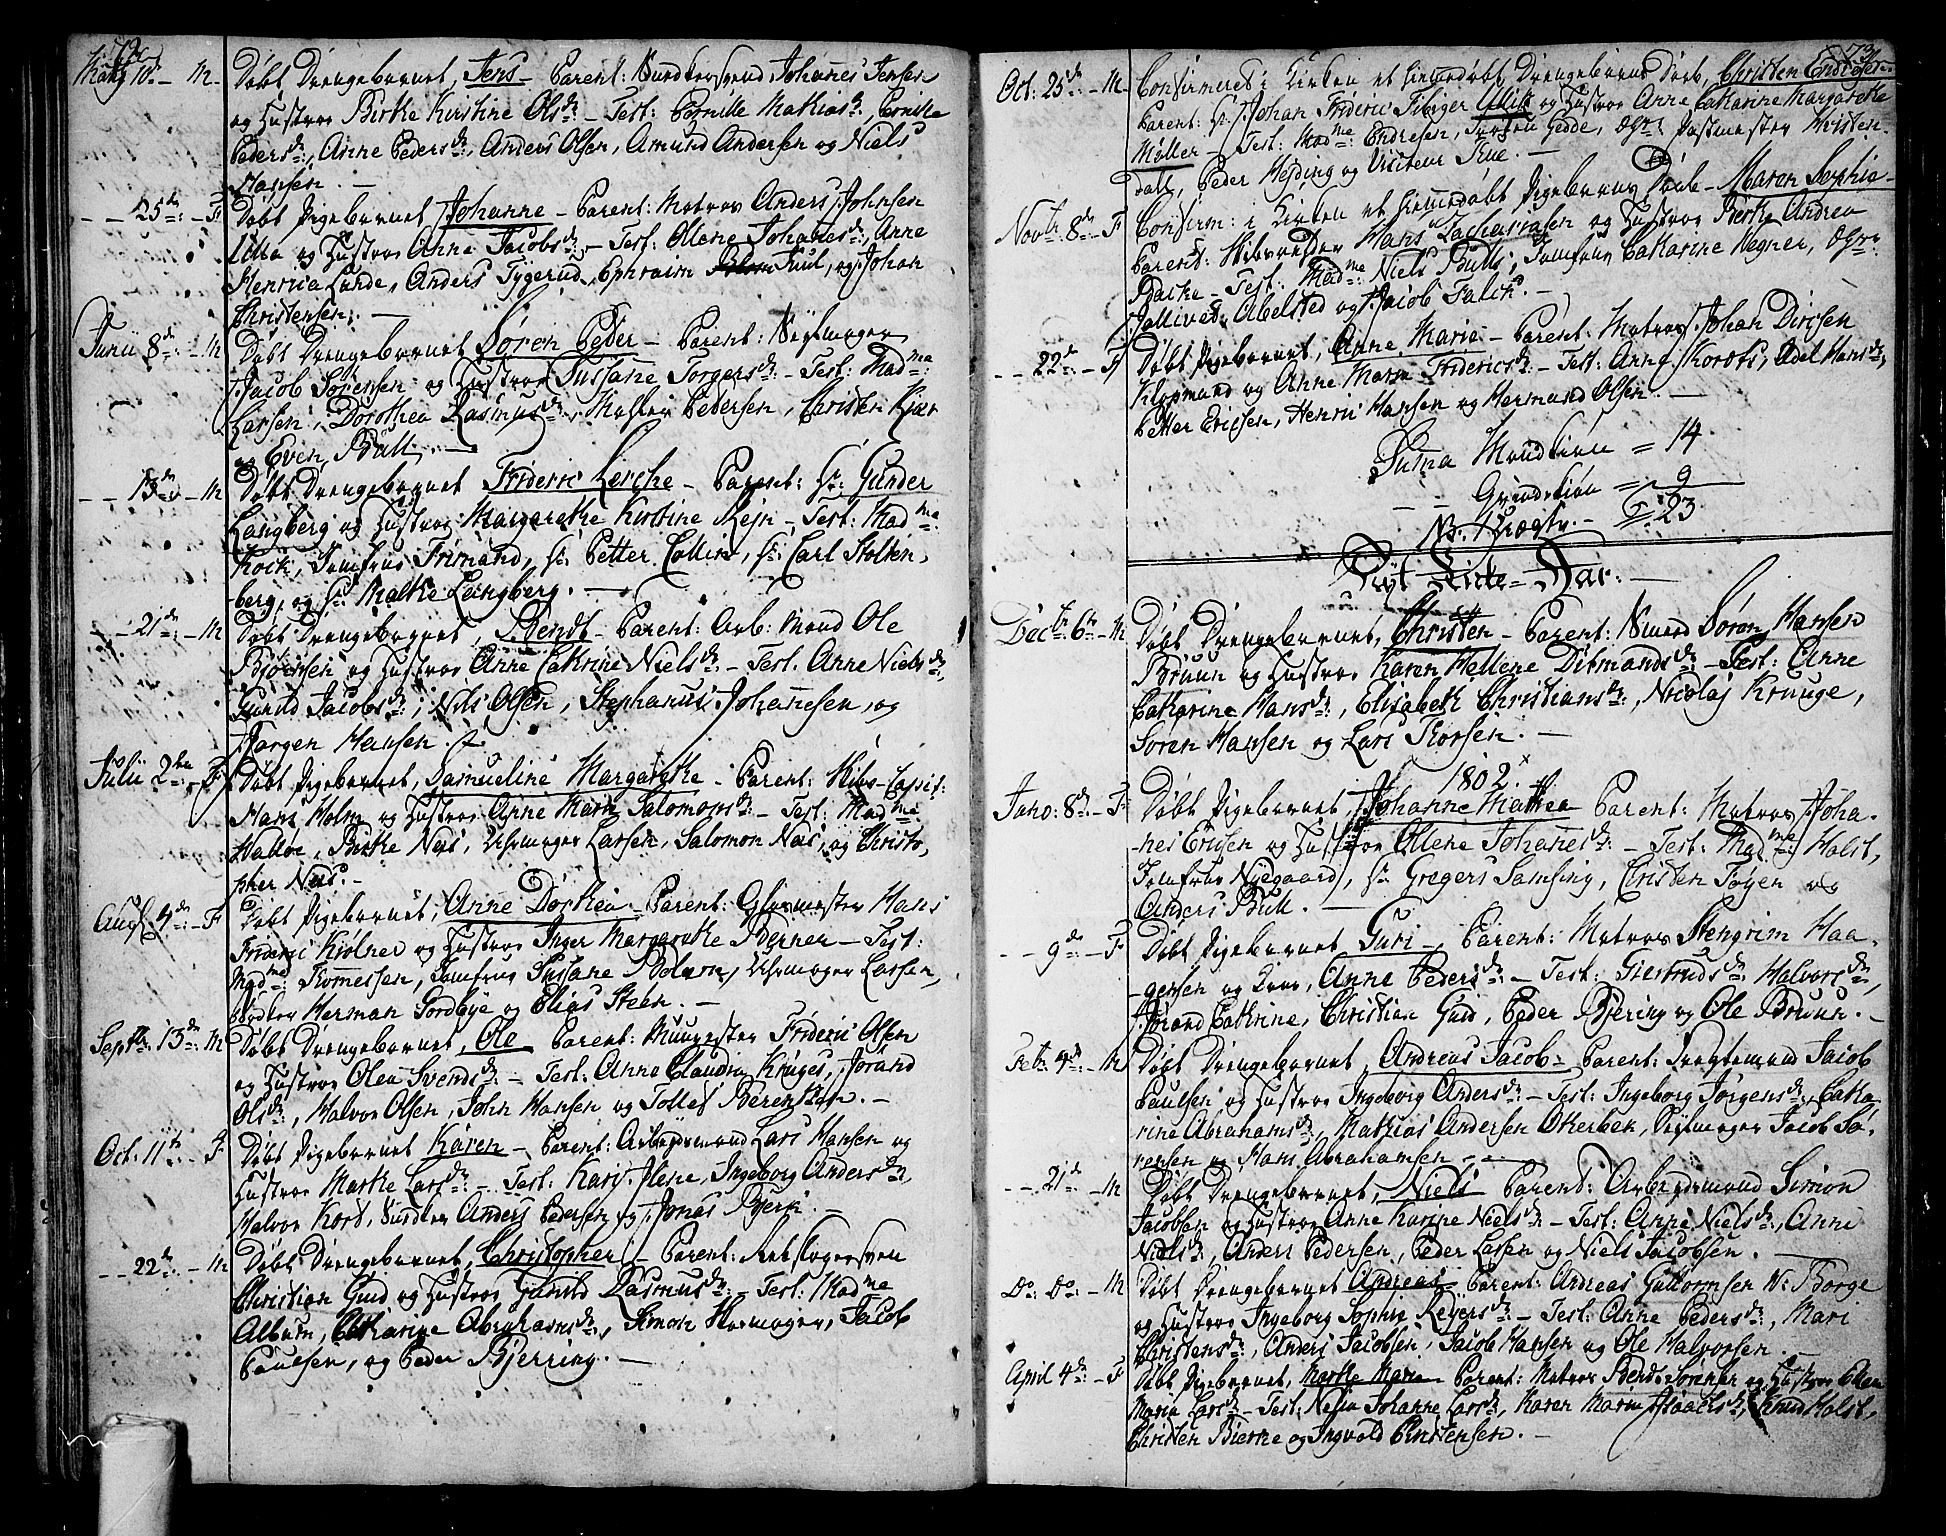 72.
Maÿ 10de – M Døbt Drengebarnet, Jens – Parent: Johannes Jensen
og Hustroe Birthe Kirstine Olsdr – Test: Pernille Mathiasdr, Pernille
Pedersdr, Anne Pedersdr, Anders Olsen, Amund Andersen og Niels
Hansen. –
– – 25de – F Døbt Pigebarnet Johanne – Parent: Matros Anders Johnsen
og Hustroe Anne Jacobsdr – Test: Ollene Johanesdr, Anne
Henrica Lunde, Anders Tÿgerud, Ephraim Juul, og Johan
Christensen. –
Junii 8de – M Døbt Drengebarnet Søren Peder – Parent: Seÿlmager
Jacob Sørensen og Hustroe Sussane Torgersdr – Test: Madme
Larsen, Dorothea Rasmusdr, Pedersen, Christen Kjær
og Even Bull. –
– – 13de – M Døbt Drengebarnet Frideric Lerche – Parent: Hr Gunder
Langberg og Hustroe Margarethe Kirstine Rejn – Test: Madme
Kock, Jomfrue Frimand, Hr Petter Collin, Hr Carl Stolten-
berg, og Hr Malthe Langberg. –
– – 21de – M Døbt Drengebarnet, Bendt – Parent: Arb: Mand Ole
Bjørnsen og Hustroe Anne Cathrine Nielsdr – Test. Anne Nielsdr,
Gunild Jacobsdr, Nils Olsen, Stephanus Johannesen, og
Jørgen Hansen.
Julii 2den – F Døbt Pigebarnet, Samueline Margarethe – Parent:
Hans Holm og Hustroe Anne Maria Salomonsdr – Test: Madme
Walløe, Birthe Neis, Uhrmager Larsen, Salomon Neis, og Christo-
pher Neis. –
Aug. 4de – F Døbt Pigebarnet, Anne Dorthea – Parent: Glarmester Hans
Frideric Kiølner og Hustroe Inger Margarethe Berner – Test:
Madme Thomessen, Jomfrue Sussane Uhrmager Larsen,
Herman Gordbÿe og Elias Steen. –
Septbr 13de – M Døbt Drengebarnet, Ole Parent: Muurmester Frideric Olsen
og Hustroe Olea Svendsdr – Test: Anne Claudia Krüges, Jorand
Olsdr, Halvor Olsen, John Hansen og Tollef Berentzen. –
Oct. 11te – F Døbt Pigebarnet Karen – Parent: Arbejdsmand Lars Hansen og
Hustroe Marthe Larsdr – Test: Kari Ingeborg Andersdr,
Halvor Kord, Anders Pedersen og Jonas Bjerk. –
– – 22de – M Døbt Drengebarnet, Christopher – Parent:
Christian Guid og Hustroe Gunild Rasmusdr – Test: Madme
Album, Catharine Abrahamsdr, Simon Jacob
Paulsen, og Peder Bjerring. –
73.
Oct: 25de – M – Confirmeret i Kirken et hiemmedøbt Drengebarns Daab, Christen Endresen –
Parent: Hr Johan Frideric Fibiger og Hustroe Anne Catharine Margarethe
Møller – Test: Madme Endresen, Jomfrue Gedde, Postmester Christen-
dall, Peder Hesding og True. –
Novbr 8de – F Confirm: i Kirken et hiemmedøbt Pigebarns Daab – Maren Sophie
Parent: Hans Zachariasen og Hustroe Birthe Andrea
Backe – Test: Madme Niels Bulls, Jomfrue Catharine Wegner,
Abelsted og Jacob Falck. –
– – 22de – F Døbt Pigebarnet, Anne Marie – Parent: Matros Johan Diricsen
Klopmand og Anne Maria Fridericsdr – Test: Anne Kordts, Adel Hansdr,
Petter Ericsen, Henric Hansen og Hermand Olsen. –
Suma Mandkiøn = 14
– – Qvindekiøn = 9
S: 23
Nyt Kirke-Aar. –
Decbr 6te – M Døbt Drengebarnet, Christen – Parent: Smed Søren Hansen
Bruun og Hustroe Karen Hellene Ditmandsdr – Test: Anne
Catharine Hansdr, Elisabeth Christiansdr, Nicolaj Kruuge,
Søren Hansen og Lars Thorsen. –
1802.
Jano: 8de – F Døbt Pigebarnet, Johanne Mathea Parent: Matros Joha-
nes Ericsen og Hustroe Ollene Johanesdr – Test: Madme Holst,
Jomfrue Nÿegaard, Hr Gregers Samsing, Christen Føÿen og
Anders Bull. –
– – 9de – F Døbt Pigebarnet Guri – Parent: Matros Stengrim Haa-
gensen og Kone, Anne Pedersdr – Test: Giertrud Halvorsdr,
Jorand Cathrine, Christian Guid, Peder Bjering og Ole Bruun. –
Febr: 4de – M Døbt Drengebarnet, Andreas Jacob – Parent: Jacob
Paulsen og Hustroe Ingeborg Andersdr – Test: Ingeborg Jørgensdr, Catha-
rine Abrahamsdr, Mathias Andersen Otterbek, Seÿlmager Jacob Sø-
rensen og Hans Abrahamsen – –
– – 21de – M Døbt Drengebarnet, Niels Parent: Arbejdsmand Simon
Jacobsen og Hustroe Anne Karine Nielsdr – Test: Anne Nielsdr, Anne
Nielsdr, Anders Pedersen, Peder Larsen og Niels Jacobsen. –
Do: Do: – M Døbt Drengebarnet Andreas Parent: Andreas Guttormsen Borge
og Hustroe Ingeborg Sophie Reÿersdr – Test: Anne Pedersdr, Mari
Christensdr, Anders Jacobsen, Jacob Hansen og Ole Halvorsen. –
April 4de – F Døbt Pigebarnet, Marthe Maria Parent: Matros Bendt og Hustroe Ellen
Maria Larsdr – Test: Johanne Larsdr, Karen Maria Isaachsdr, Knud Holst,
Christen Bierke og Ingvold Christensen. –